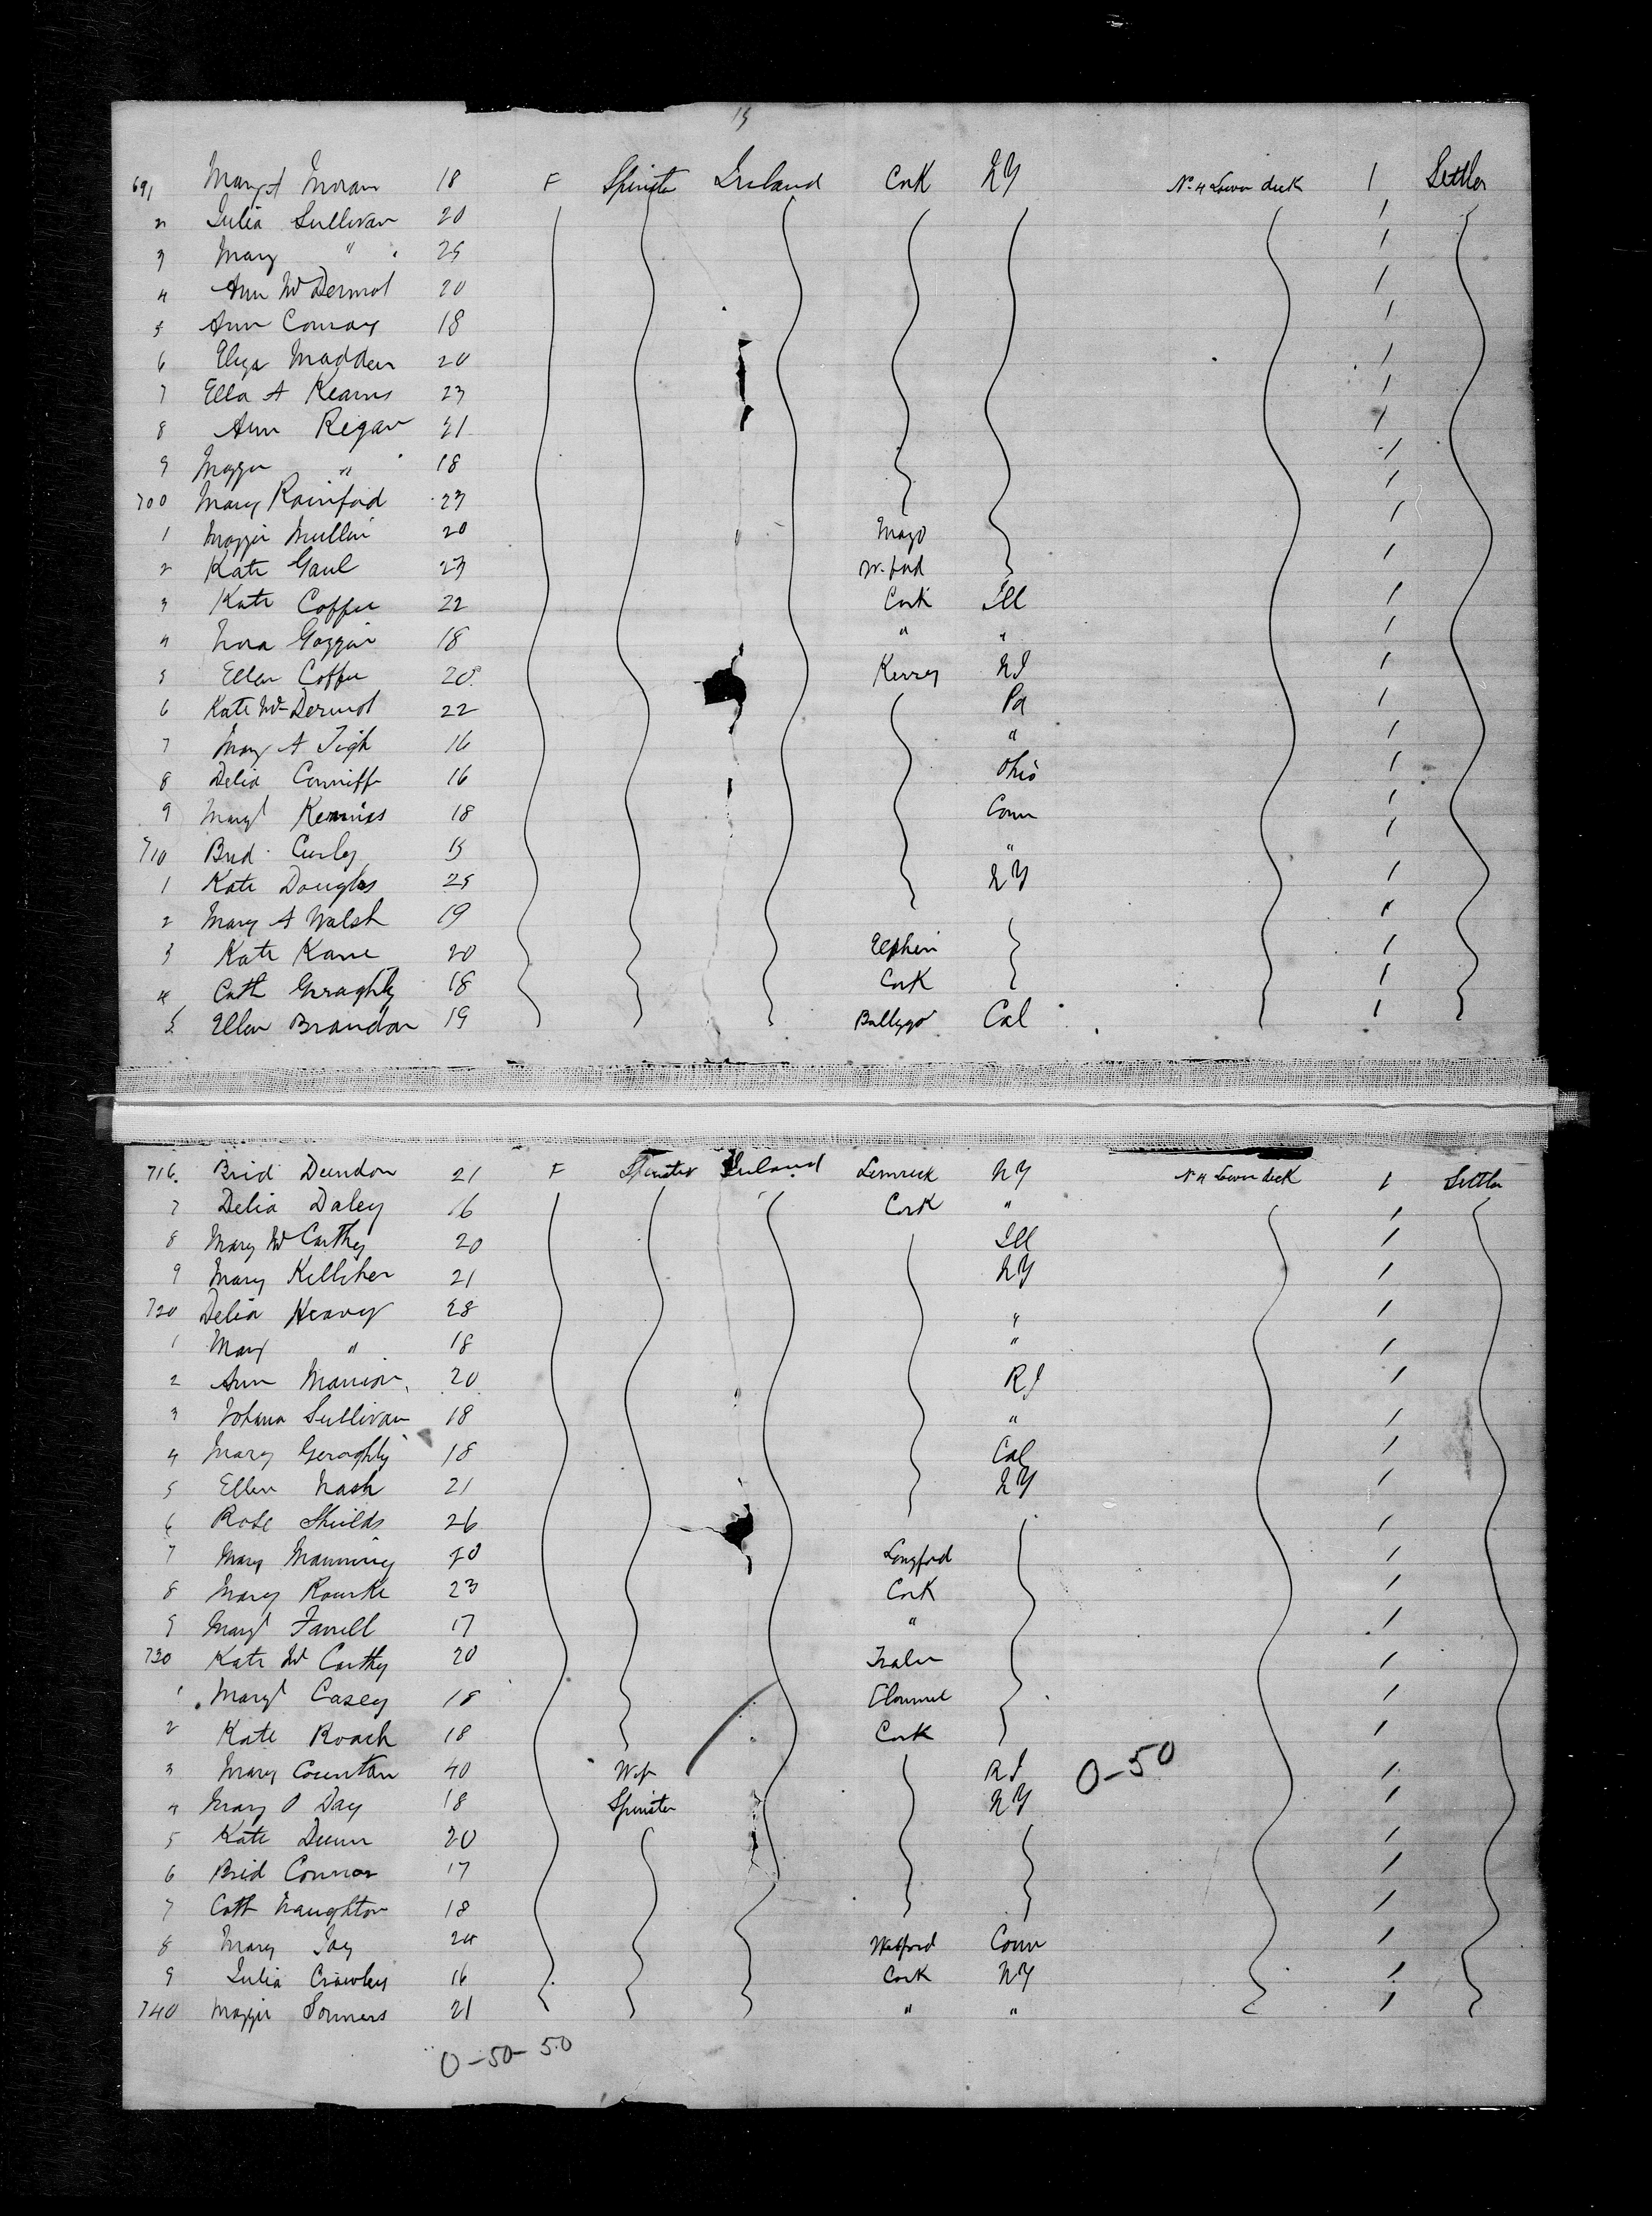 15
691 Margt Moran 18 F Spinster Ireland Cork NY No 4 Lower deck 1 Settler
2 Julia Sullivan 20 /
3 Mary " 25 /
4 Ann McDermot 20 /
5 Ann Conway 18 /
6 Eliza Madden 20 /
7 Ella A Kearns 23 /
8 Ann Regan 21 /
9 Maggie " 18 /
700 Mary Rainford 23 /
1 Maggie Mullin 20 Mayo /
2 Kate Gaul 23 W.ford /
3 Kate Coffee 22 Cork Ill /
4 Nora Goggin 18 " " /
5 Ellen Coffee 20 Kerry NJ /
6 Kate McDermot 22 Pa /
7 Mary A Tigh 16 " /
8 Delia Conniffe 16 Ohio /
9 Margt 18 Conn /
710 Brid Curley " /
1 Kate Douglas 25 NY /
2 Mary A Walsh 19 /
3 Kate Kane 20 Elphin /
4 Cath Geraghty 18 Cork /
5 Ellen Brandon 19 Ballygo Cal /
716 Brid Deendon 21 F Spinster Ireland Limrick NY No 4 Lower deck 1 Settler
7 Delia Daley 16 Cork " /
8 Mary McCarthy 20 Ill /
9 Mary Kelliher 21 NY /
720 Delia Heavey 28 " /
1 Mary " 18 " /
2 Ann Mannion 20 RI /
3 Johana Sullivan 18 " /
4 Mary Geraghty 18 Cal /
5 Ellen Nash 21 NY /
6 Rose Shields 26 /
7 Mary Manning 20 Longford /
8 Mary Rourke 23 Cork /
9 Margt Farrell 17 " /
730 Kate McCarthy 20 Tralee /
1 Margt Casey 18 Clonmel /
2 Kate Roach 18 Cork /
3 Mary Counton 40 Wife RI 0-50 /
4 Mary O Day 18 Spinster NY /
5 Kate Dunn 20 /
6 Brid Connor 17 /
7 Cath Naughton 18 /
8 Mary Joy 24 Watford Conn /
9 Julia Crowley 16 Cork NY /
740 Maggie Somers 21 " " /
0-50-50